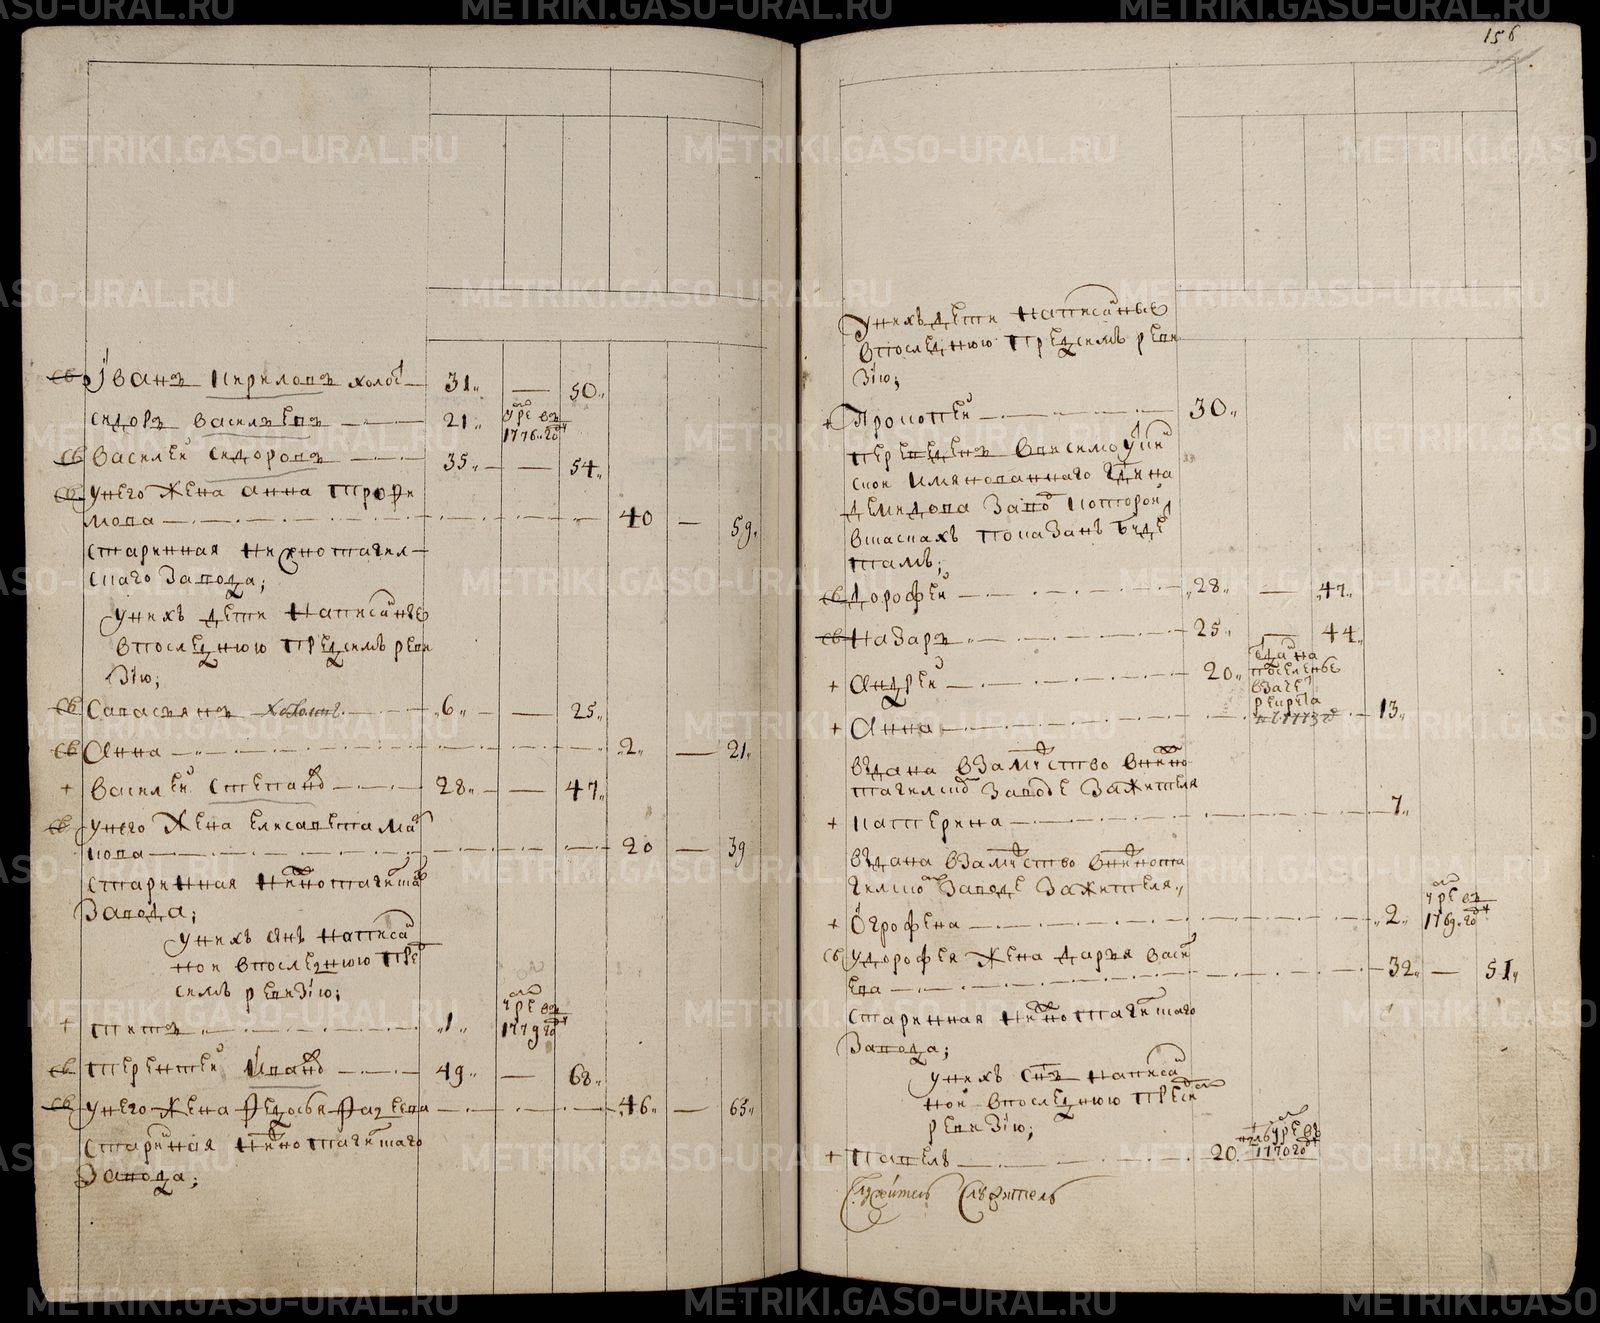 св Иванъ Кириловъ холос 31 — 50
Сидоръ Васильевъ 21 умре въ 1776 год
св Василей Сидоровъ 35 — 54
св у него жена Анна Трофи
мова 40 — 59
старинная Нижнотагил
скаго завода;
у них дети написаные
в последнюю пред сим реви
зию;
св Савастьянъ холостъ 6 — 25
св Анна 2 — 21
+ Василей Степанов 28 — 47
св у него жена Елисавета Ма
кова 20 — 39
старинная Нижнотагилска
завода;
у них сын написа
ной в последнюю пред
симъ ревизию;
+ Титъ 1 умре въ 1779 год
св Терентей Иванов 49 — 68
св у него жена Федосья Фадеева 46 — 65
старинная Нижнотагилскаго
завода;
156
у них дети написаные
в последнюю пред симъ реви
зию;
+ Прокопей 30
переведенъ в
имянованнаго Гдина
Демидова завод которой
в сказках показанъ буде
тамъ;
св Дорофей 28 — 47
св Назаръ 25 — 44
+ Андрей 20 отдан на поселенье в зачет рекрета в 1773 г
+ Анна 13
въдана в замужство в Нижно
тагилском заводе за жителя
+ Катерина 7
въдана в замужство в Нижнота
гилском заводе за жителя
+ Огрофена 2 умре въ 1769 год
св у Дорофея жена Дарья Васил
ева 32 — 51
старинная Нижнотагилскаго
завода;
у них сынъ написа
ной в последнюю пред сим
ревизию;
+ Павелъ 20 умре въ 1770 год
METRIKI.GASO-URAL.RU